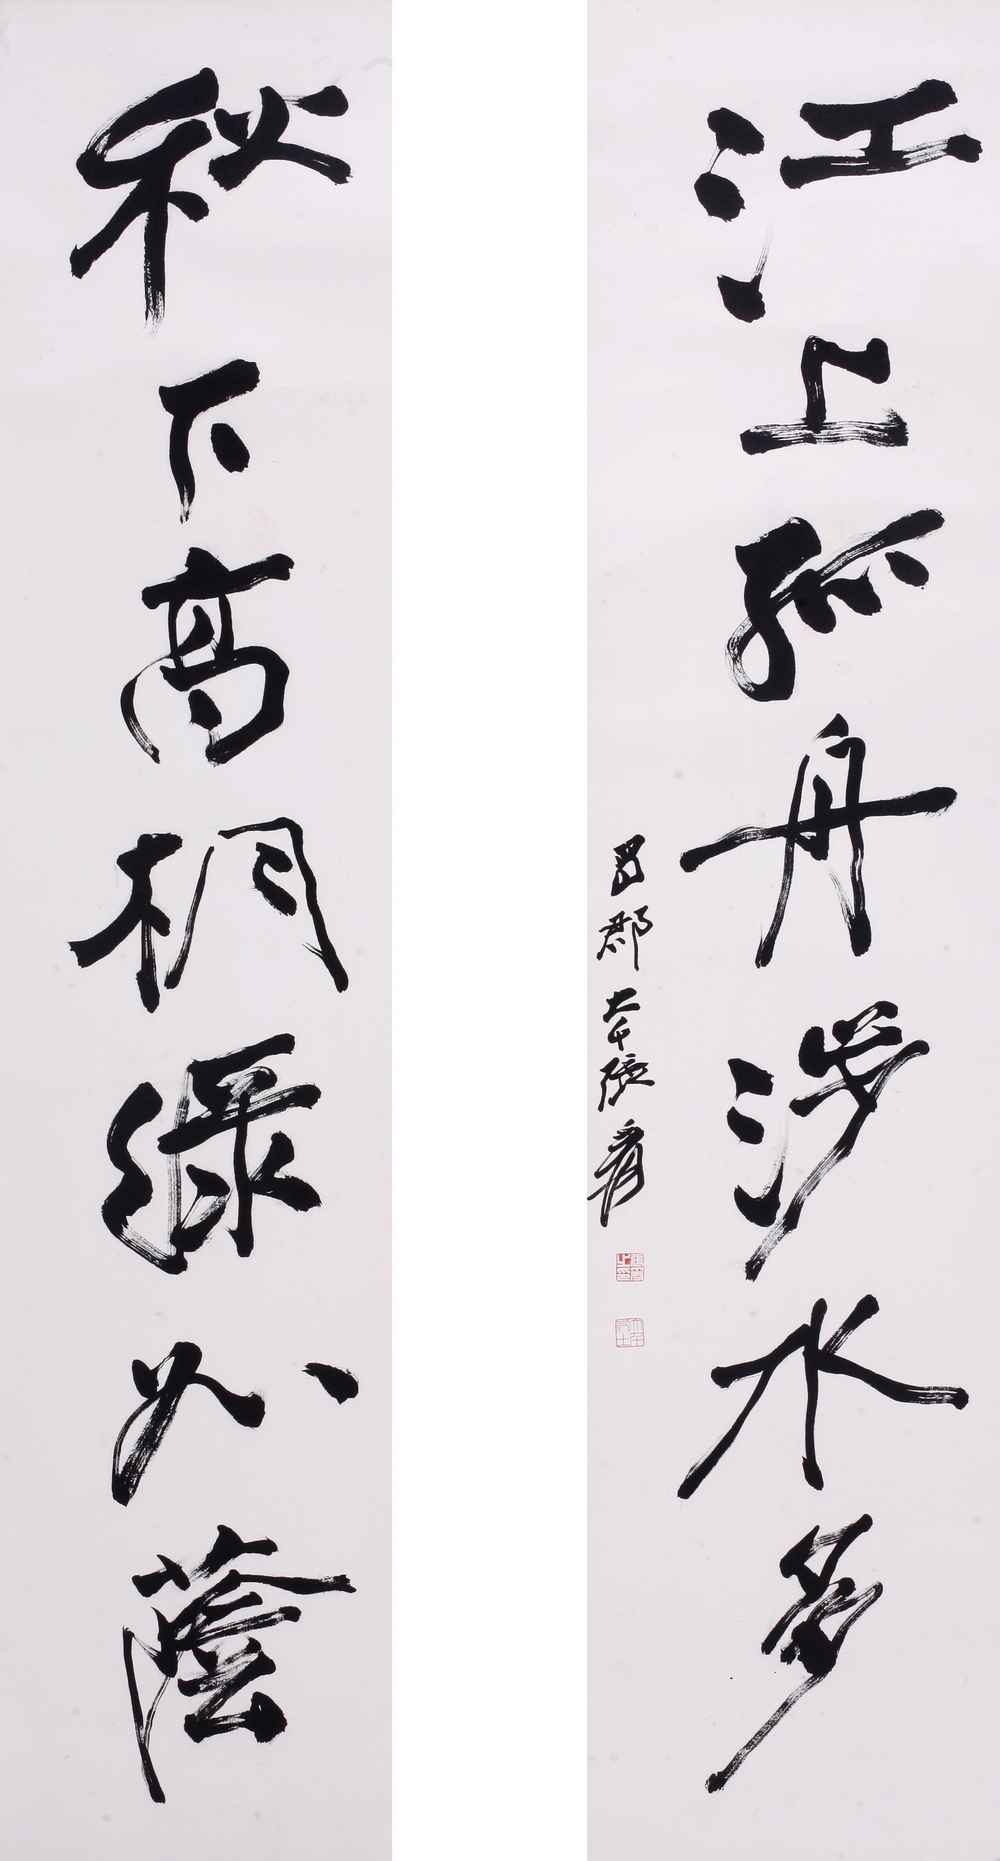 江上孤舟涉水多
蜀郡大千張爰
秋下高桐綠蔭